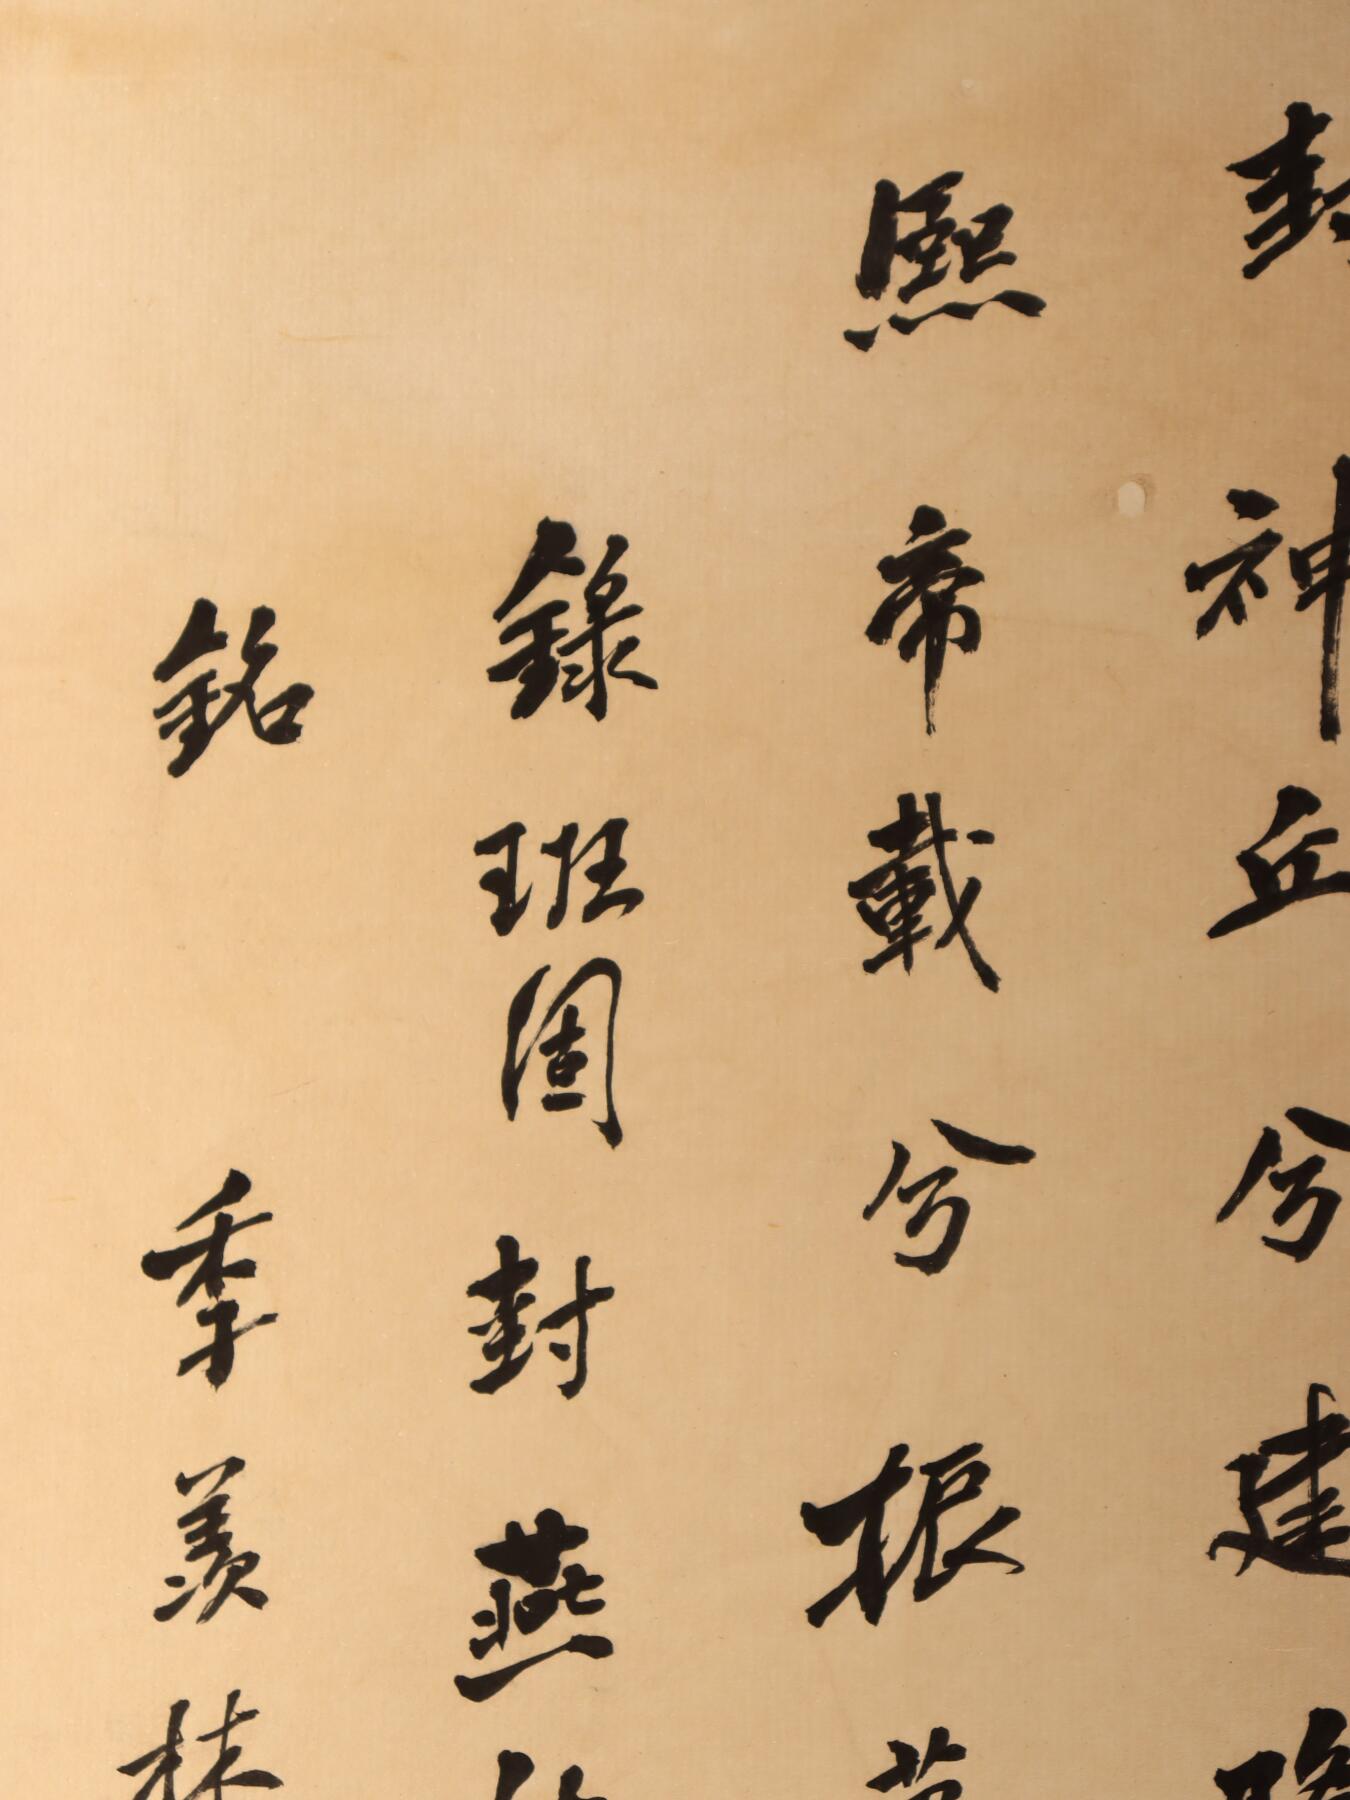 封神丘兮建隆
熙帝載兮振萬
錄班固封燕然
銘 季羨林